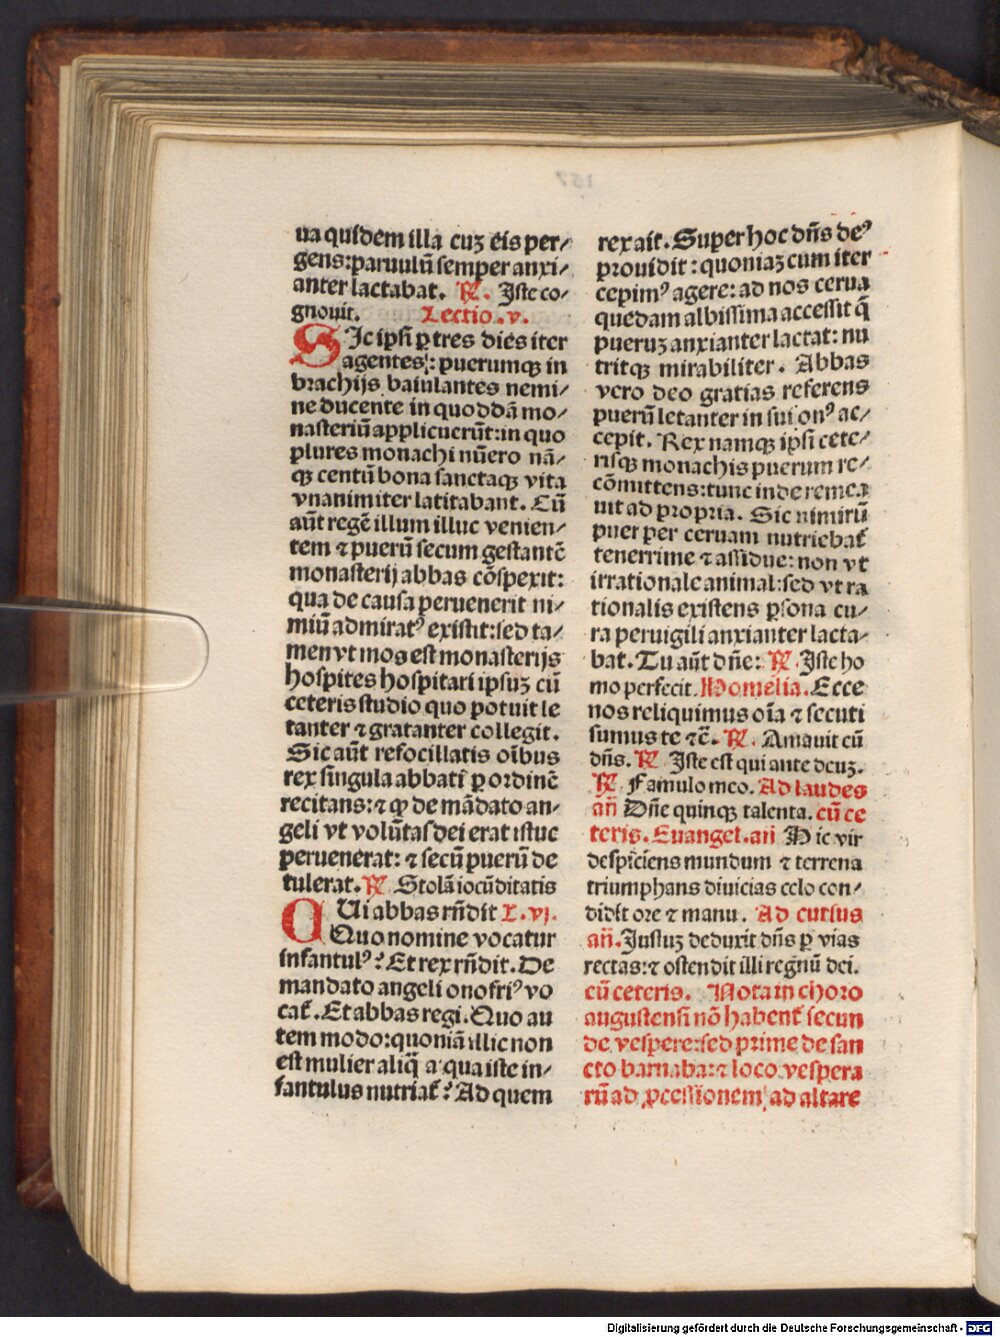 ua quidem illa cuʒ eis per⸗
gens:paruulū semper anxi⸗
anter lactabat. ℟. Iste co⸗
gnouit. Lectio.v.
SIc ipsi ꝑ tres dies iter
agentes: puerumqꝫ in
brachijs baiulantes nemi⸗
ne ducente in quoddā mo⸗
nasteriū applicuerūt:in quo
plures monachi nūero nā⸗
qꝫ centū bona sanctaqꝫ vita
vnanimiter latitabant. Cū
aūt regē illum illuc venien⸗
tem ⁊ puerū secum gestantē
monasterij abbas cōspexit:
qua de causa peruenerit ni⸗
miū admiratꝰ existit:sed ta⸗
men vt mos est monasterijs
hospites hospitari ipsuʒ cū
ceteris studio quo potuit le
tanter ⁊ gratanter collegit.
Sic aūt refocillatis oībus
rex singula abbati ꝑ ordinē
recitans:⁊ ꝙ de mādato an⸗
geli vt volūtas dei erat istuc
peruenerat: ⁊ secū puerū de
tulerat. ℟ Stolā iocūditatis
QUi abbas rn̄dit L.vj.
Quo nomine vocatur
infantulꝰ? Et rex rn̄dit. De
mandato angeli onofriꝰ vo
cat̄. Et abbas regi. Quo au
tem modo:quoniā illic non
est mulier aliq̄ a qua iste in⸗
fantulus nutriat̄? Ad quem
rex ait. Super hoc dn̄s deꝰ
prouidit: quoniaʒ cum iter
cepimꝰ agere: ad nos cerua
quedam albissima accessit q̄
pueruʒ anxianter lactat: nu
tritqꝫ mirabiliter. Abbas
vero deo gratias referens
puerū letanter in sui onꝰ ac⸗
cepit. Rex namqꝫ ipsi cete⸗
risqꝫ monachis puerum re⸗
cōmittens:tunc inde remea
uit ad propria. Sic nimirū
puer per ceruam nutriebat̄
tenerrime ⁊ assidue: non vt
irrationale animal:sed vt ra
tionalis existens ꝑsona cu⸗
ra peruigili anxianter lacta⸗
bat. Tu aūt dn̄e: ℟. Iste ho
mo perfecit. Homelia. Ecce
nos reliquimus oīa ⁊ secuti
sumus te ⁊c̄. ℟. Amauit cū
dn̄s. ℟ Iste est qui ante deuʒ.
℟ Famulo meo. Ad laudes
an̄ Dn̄e quinqꝫ talenta. cū ce
teris. Euangel. an̄ Hic vir
despiciens mundum ⁊ terrena
triumphans diuicias celo con⸗
didit ore ⁊ manu. Ad cursus
an̄. Justuʒ deduxit dn̄s ꝑ vias
rectas:⁊ ostendit illi regnū dei.
cū ceteris. Nota in choro
augustensi nō habent̄ secun
de vespere:sed prime de san
cto barnaba:⁊ loco vespera
rū ad ꝓcessionem ad altare
Digitalisierung gefördert durch die Deutsche Forschungsgemeinschaft - DFG